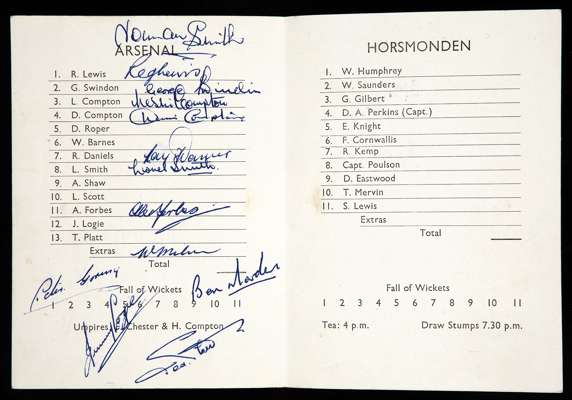 Norman Smith
ARSENAL
1. R. Lewis Reg Lewis
2. G. Swindon George Swindin
3. L. Compton Leslie Compton
4. D. Compton Denis Compton
5. D. Roper
6. W. Barnes
7. R. Daniels Ray Daniels
8. L. Smith Lionel Smith
9. A. Shaw
10. L. Scott
11. A. Forbes Alex Forbes
12. J. Logie
13. T. Platt
Extras
Total
Peter Goring
Ben Marden
Fall of Wickets
1 2 3 4 5 6 7 8 9 10 11
Umpires: Chester & H. Compton
HORSMONDEN
1. W. Humphrey
2. W. Saunders
3. G. Gilbert
4. D. A. Perkins (Capt.)
5. E. Knight
6. F. Cornwallis
7. R. Kemp
8. Capt. Poulson
9. D. Eastwood
10. T. Mervin
11. S. Lewis
Extras
Total
Fall of Wickets
1 2 3 4 5 6 7 8 9 10 11
Tea: 4 p.m. Draw Stumps 7.30 p.m.